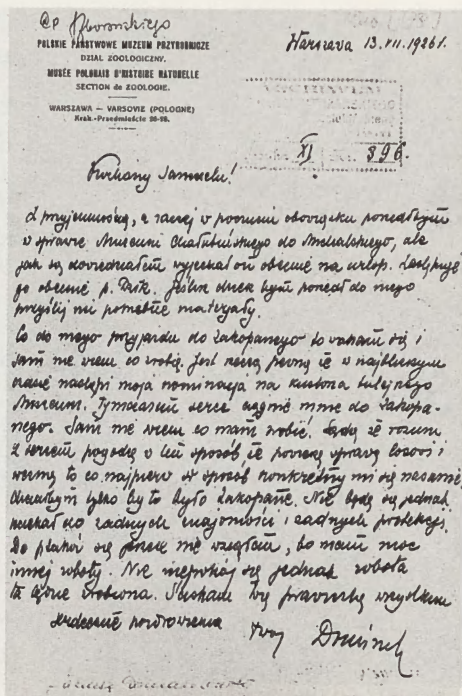 POLSKIE PAŃSTWOWE MUZEUM PRZYRODNICZE
DZIAŁ ZOOLOGICZNY.
MUSÉE POLONAIS D'HISTOIRE NATURELLE
SECTION de ZOOLOGIE.
WARSZAWA – VARSOVIE (POLOGNE)
Krak.-Przedmieście 26-28.
Warszawa 13.VII.1926 r.
XI 396.
Kochany Samuelu!
Z przyjemnością, a raczej w poczuciu obowiązku poszedłbym
w sprawie Muzeum Chałubińskiego do Michalskiego, ale
jak się dowiedziałem wyjechał on obecnie na urlop. Zastępuje
go obecnie p. Jeśliby chciał bym poszedł do niego
przyślij mi potrzebne materjały.
Co do mego przyjazdu do Zakopanego to waham się i
sam nie wiem co zrobię. Jest rzeczą pewną że w najbliższym
czasie nastąpi moja nominacja na kustosza tutejszego
Muzeum. Tymczasem serce ciągnie mnie do Zakopa-
nego. Sam nie wiem co mam robić. Sądzę że rozum
z sercem pogodzę w ten sposób że poruczę sprawę losowi i
wezmę to co najpierw w sposób konkretny mi się nasunie,
chciałbym tylko by to było Zakopane. Nie będę się jednak
uciekał do żadnych znajomości i żadnych protekcji.
Do się jeszcze nie wziąłem, bo mam moc
innej roboty. Nie niepokój się jednak robota
ta będzie zrobiona. Ściskam Cię
serdecznie pozdrowienia
Twój